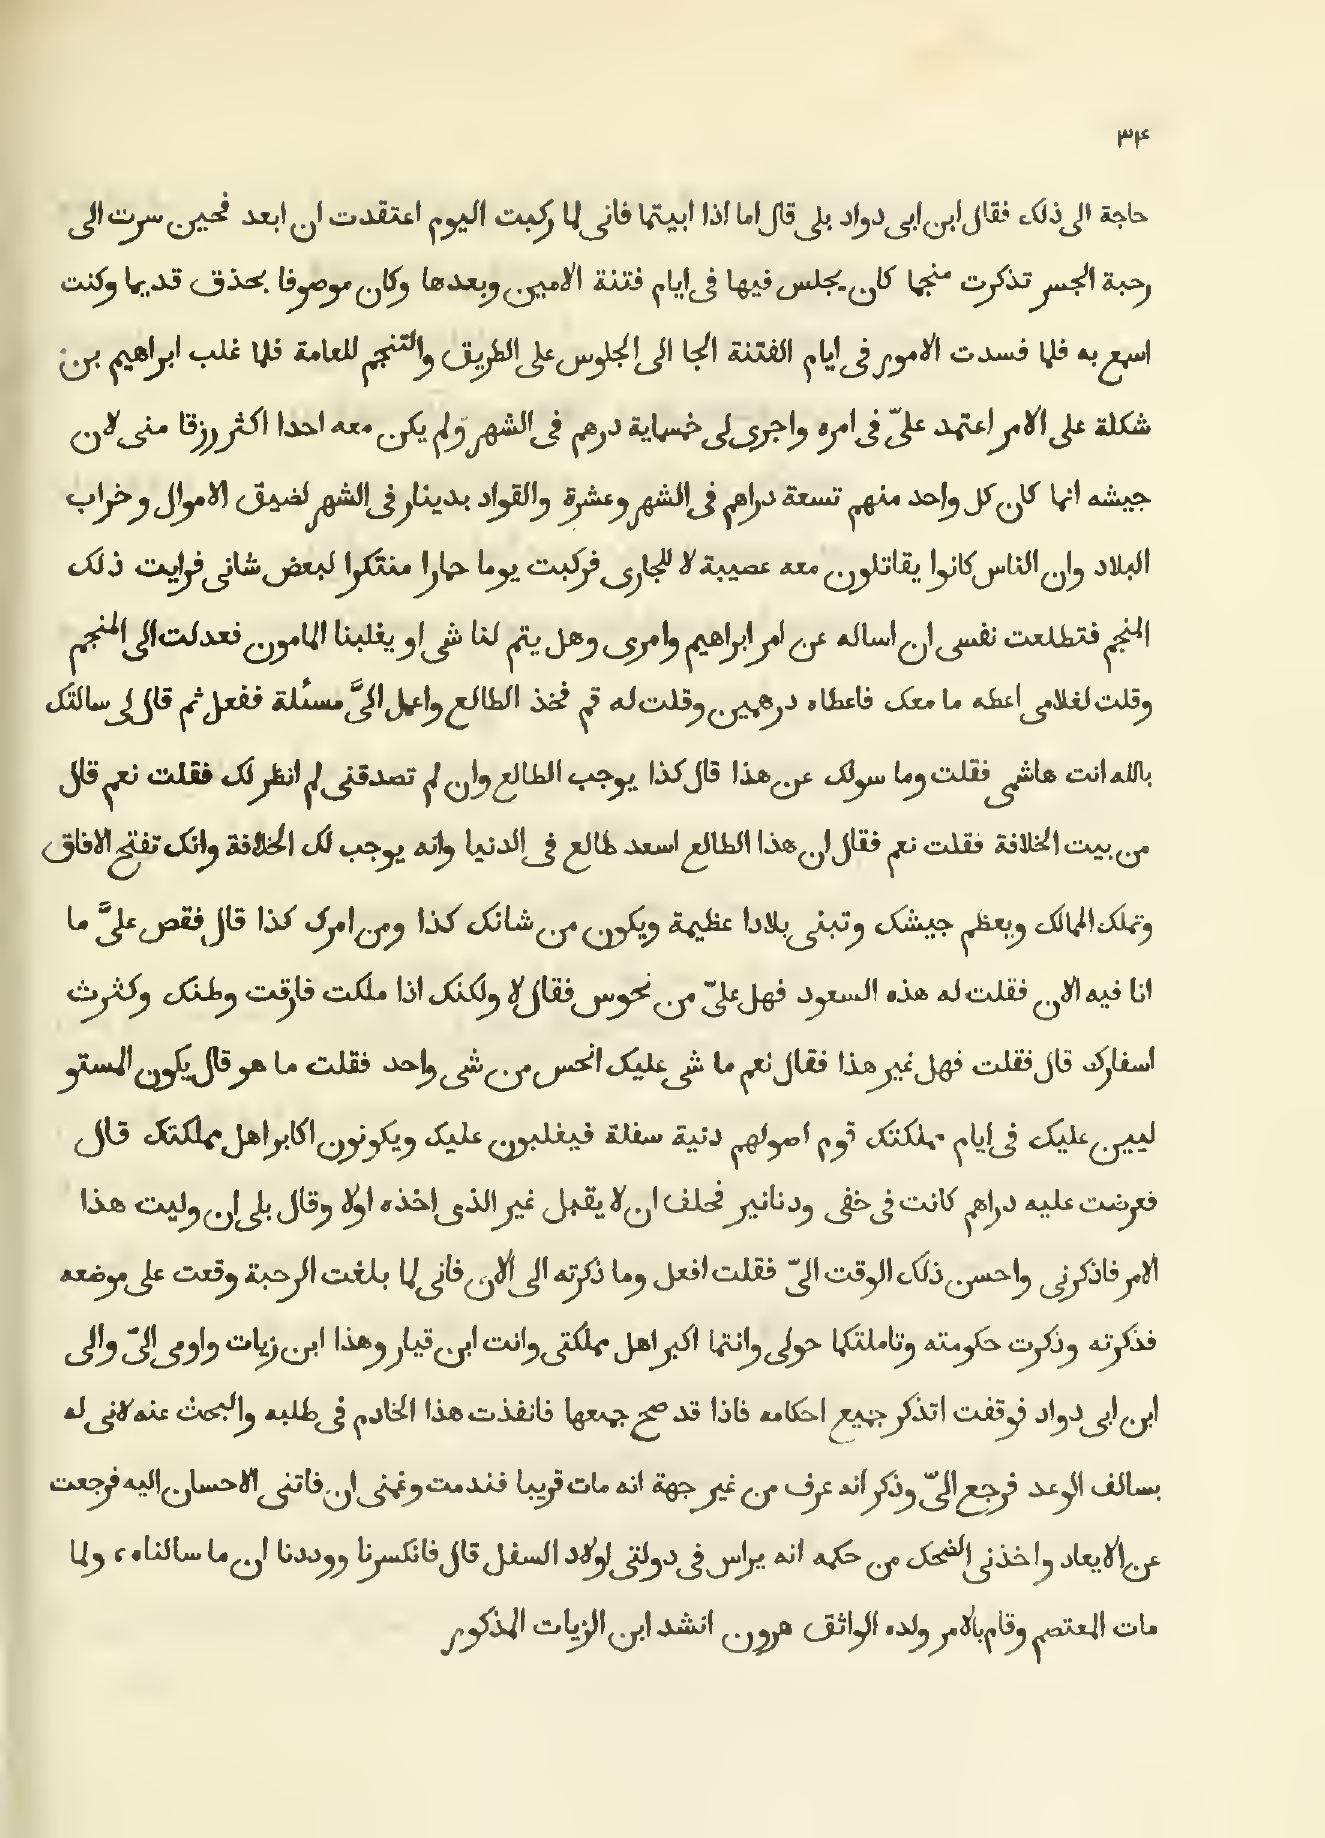 ٣۴
حاجة الى ذلك فقال ابن ابى دواد بلى قال اما اذا ابيتما فانى لما ركبت اليوم اعتقدت ان ابعد فحين سرت الى
رحبة الجسر تذكرت منجما كان يجلس فيها فى ايام فتنة الامين وبعدها وكان موصوفا بحذق قديما وكنت
اسمع به فلما فسدت الامور فى ايام الفتنة الجا الى الجلوس على الطريق والتنجم للعامة فلما غلب ابراهيم بن
شكلة على الامر اعتمد علىّ فى امره واجرى لى خمساية درهم فى الشهر ولم يكن معه احدا اكثر رزقا منى لان
جيشه انما كان كل واحد منهم تسعة دراهم فى الشهر وعشرة والقواد بدينار فى الشهر لضيق الاموال وخراب
البلاد وان الناس كانوا يقاتلون معه عصيبة لا للجارى فركبت يوما حمارا منتكرا لبعض شانى فرايت ذلك
المنجم فتطلعت نفسى ان اساله عن امر ابراهيم وامرى وهل يتم لنا شى او يغلبنا المامون فعدلت الى المنجم
وقلت لغلامى اعطه ما معك فاعطاه درهمين وقلت له قم فخذ الطالع واعمل الىَّ مسئلة ففعل ثم قال لى سالتك
بالله انت هاشمى فقلت وما سولك عن هذا قال كذا يوجب الطالع وان لم تصدقنى لم انظر لك فقلت نعم قال
من بيت الخلافة فقلت نعم فقال ان هذا الطالع اسعد طالع فى الدنيا وانه يوجب لك الخلافة وانك تفتح الافاق
وتملك الممالك ويعظم جيشك وتبنى بلادا عظيمة ويكون من شانك كذا ومن امرك كذا قال فقص علىَّ ما
انا فيه الان فقلت له هذه السعود فهل علىّ من نحوس فقال لا ولكنك اذا ملكت فارقت وطنك وكثرث
اسفارك قال فقلت فهل غير هذا فقال نعم ما شى عليك انحس من شى واحد فقلت ما هو قال يكون المستو
ليين عليك فى ايام مملكتك قوم اصولهم دنية سفلة فيغلبون عليك ويكونون اكابر اهل مملكتك قال
فعرضت عليه دراهم كانت فى خفى ودنانير فحلف ان لا يقبل غير الذى اخذه اولا وقال بلى ان وليت هذا
الامر فاذكرنى واحسن ذلك الوقت الىّ فقلت افعل وما ذكرته الى الان فانى لما بلغت الرحبة وقعت على موضعه
فذكرته وذكرت حكومته وتاملتكما حولى وانتما اكبر اهل مملكتى وانت ابن قيار وهذا ابن زيات واومى الىّ والى
ابن ابى دواد فوقفت اتذكر جميع احكامه فاذا قد صح جمعها فانفذت هذا الخادم فى طلبه والبحث عنه لانى له
بسالف الوعد فرجع الىّ وذكر انه عرف من غير جهة انه مات قريبا فندمت وغمنى ان فاتنى الاحسان اليه فرجعت
عن الايعاد واخذنى الضحك من حكمه انه يراس فى دولتى اولاد السفل قال فانكسرنا ووددنا ان ما سالناه، ولما
مات المعتصم وقام بالامر ولده الواثق هرون انشد ابن الزيات المذكور